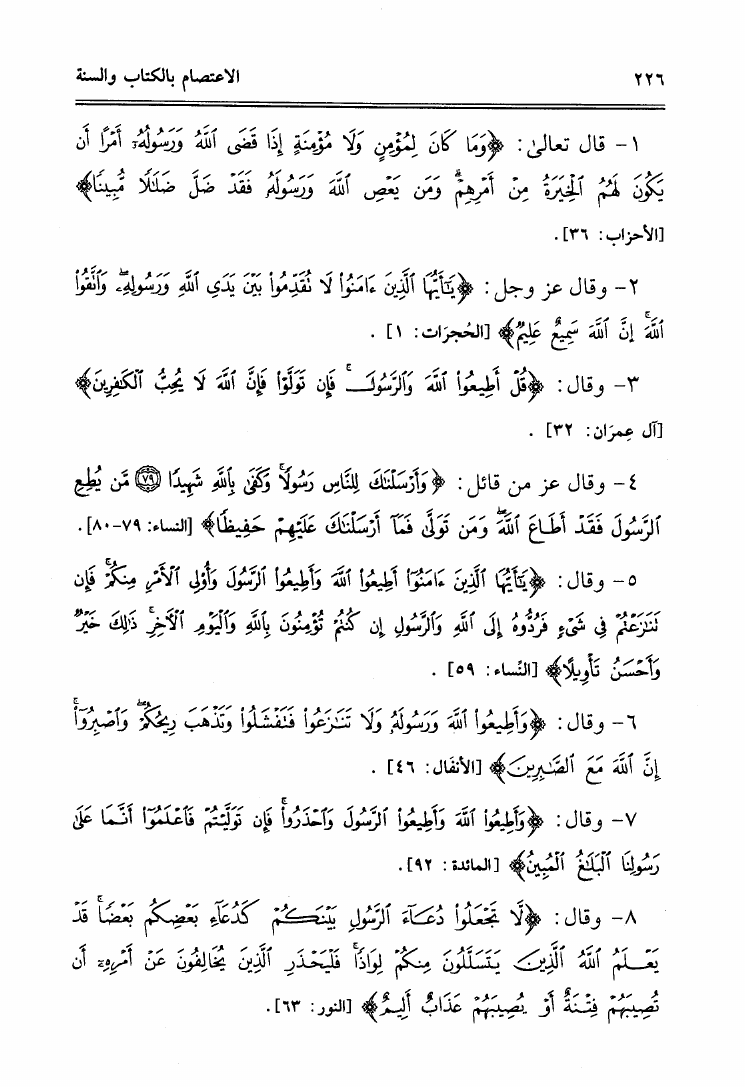 ٢٢٦ الاعتصام بالكتاب والسنة
١- قال تعالىٰ: ﴿وَمَا كَانَ لِمُؤْمِنٍ وَلَا مُؤْمِنَةٍ إِذَا قَضَى ٱللَّهُ وَرَسُولُهُۥٓ أَمْرًا أَن
يَكُونَ لَهُمُ ٱلْخِيَرَةُ مِنْ أَمْرِهِمْ ۗ وَمَن يَعْصِ ٱللَّهَ وَرَسُولَهُۥ فَقَدْ ضَلَّ ضَلَٰلًا مُّبِينًا﴾
[الأحزاب: ٣٦].
٢- وقال عز وجل: ﴿يَٰٓأَيُّهَا ٱلَّذِينَ ءَامَنُوا۟ لَا تُقَدِّمُوا۟ بَيْنَ يَدَىِ ٱللَّهِ وَرَسُولِهِۦ ۖ وَٱتَّقُوا۟
ٱللَّهَ ۚ إِنَّ ٱللَّهَ سَمِيعٌ عَلِيمٌ﴾ [الحُجرَات: ١] .
٣- وقال: ﴿قُلْ أَطِيعُوا۟ ٱللَّهَ وَٱلرَّسُولَ ۖ فَإِن تَوَلَّوْا۟ فَإِنَّ ٱللَّهَ لَا يُحِبُّ ٱلْكَٰفِرِينَ﴾
[آل عِمرَان: ٣٢] .
٤- وقال عز من قائل: ﴿وَأَرْسَلْنَٰكَ لِلنَّاسِ رَسُولًا ۚ وَكَفَىٰ بِٱللَّهِ شَهِيدًا ﴿٧٩﴾ مَّن يُطِعِ
ٱلرَّسُولَ فَقَدْ أَطَاعَ ٱللَّهَ ۖ وَمَن تَوَلَّىٰ فَمَآ أَرْسَلْنَٰكَ عَلَيْهِمْ حَفِيظًا﴾ [النساء: ٧٩-٨٠].
٥- وقال: ﴿يَٰٓأَيُّهَا ٱلَّذِينَ ءَامَنُوٓا۟ أَطِيعُوا۟ ٱللَّهَ وَأَطِيعُوا۟ ٱلرَّسُولَ وَأُو۟لِى ٱلْأَمْرِ مِنكُمْ ۖ فَإِن
تَنَٰزَعْتُمْ فِى شَىْءٍ فَرُدُّوهُ إِلَى ٱللَّهِ وَٱلرَّسُولِ إِن كُنتُمْ تُؤْمِنُونَ بِٱللَّهِ وَٱلْيَوْمِ ٱلْءَاخِرِ ۚ ذَٰلِكَ خَيْرٌ
وَأَحْسَنُ تَأْوِيلًا﴾ [النِّساء: ٥٩] .
٦- وقال: ﴿وَأَطِيعُوا۟ ٱللَّهَ وَرَسُولَهُۥ وَلَا تَنَٰزَعُوا۟ فَتَفْشَلُوا۟ وَتَذْهَبَ رِيحُكُمْ ۖ وَٱصْبِرُوٓا۟ ۚ
إِنَّ ٱللَّهَ مَعَ ٱلصَّٰبِرِينَ﴾ [الأنفَال: ٤٦] .
٧- وقال: ﴿وَأَطِيعُوا۟ ٱللَّهَ وَأَطِيعُوا۟ ٱلرَّسُولَ وَٱحْذَرُوا۟ ۚ فَإِن تَوَلَّيْتُمْ فَٱعْلَمُوٓا۟ أَنَّمَا عَلَىٰ
رَسُولِنَا ٱلْبَلَٰغُ ٱلْمُبِينُ﴾ [المائدة: ٩٢].
٨- وقال: ﴿لَّا تَجْعَلُوا۟ دُعَآءَ ٱلرَّسُولِ بَيْنَكُمْ كَدُعَآءِ بَعْضِكُم بَعْضًا ۚ قَدْ
يَعْلَمُ ٱللَّهُ ٱلَّذِينَ يَتَسَلَّلُونَ مِنكُمْ لِوَاذًا ۚ فَلْيَحْذَرِ ٱلَّذِينَ يُخَالِفُونَ عَنْ أَمْرِهِۦٓ أَن
تُصِيبَهُمْ فِتْنَةٌ أَوْ يُصِيبَهُمْ عَذَابٌ أَلِيمٌ﴾ [النور: ٦٣].